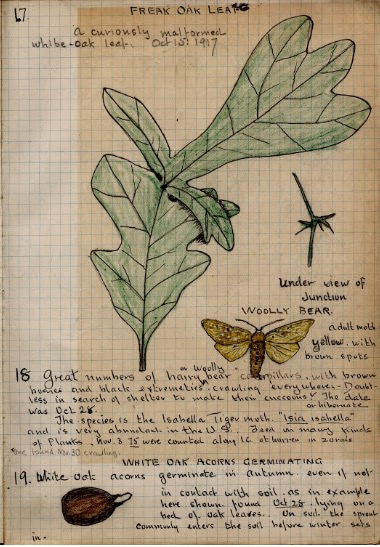 17 FREAK OAK LEAF
a curiously malformed
white-oak leaf. Oct 15, 1917
Under view of
Junction
WOOLLY BEAR.
adult moth
yellow. with
brown spots
a woolly
18 Great numbers of hairy bear caterpillars. with brown
bodies and black extremeties crawling everywhere. Doubt-
less in search of shelter to make their cuccoons. The date
or hibernate
was Oct 28.
The species is the Isabella Tiger moth. "Isia isabella"
and is very abundant in the U.S. Feed on many kinds
of Plants. Nov. 3 15 were counted along
One found Nov. 30 crawling.
WHITE OAK ACORNS GERMINATING
19. White Oak acorns germinate in autumn even if not
in contact with soil. as in example
here shown found Oct 28. lying on a
bed of oak leaves. On soil the sprout
commonly enters the soil before winter sets
in.